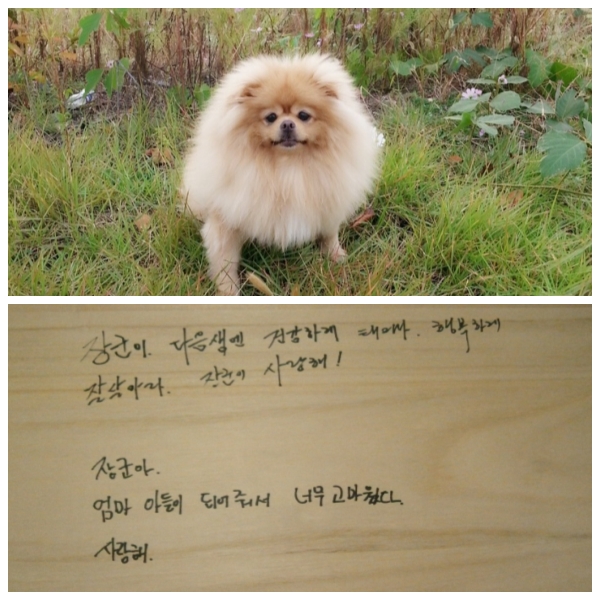 장군이. 다음생엔 건강하게 태어나. 행복하게
잘살아라. 장군이 사랑해!
장군아.
엄마 아들이 되어줘서 너무 고마웠다.
사랑해.